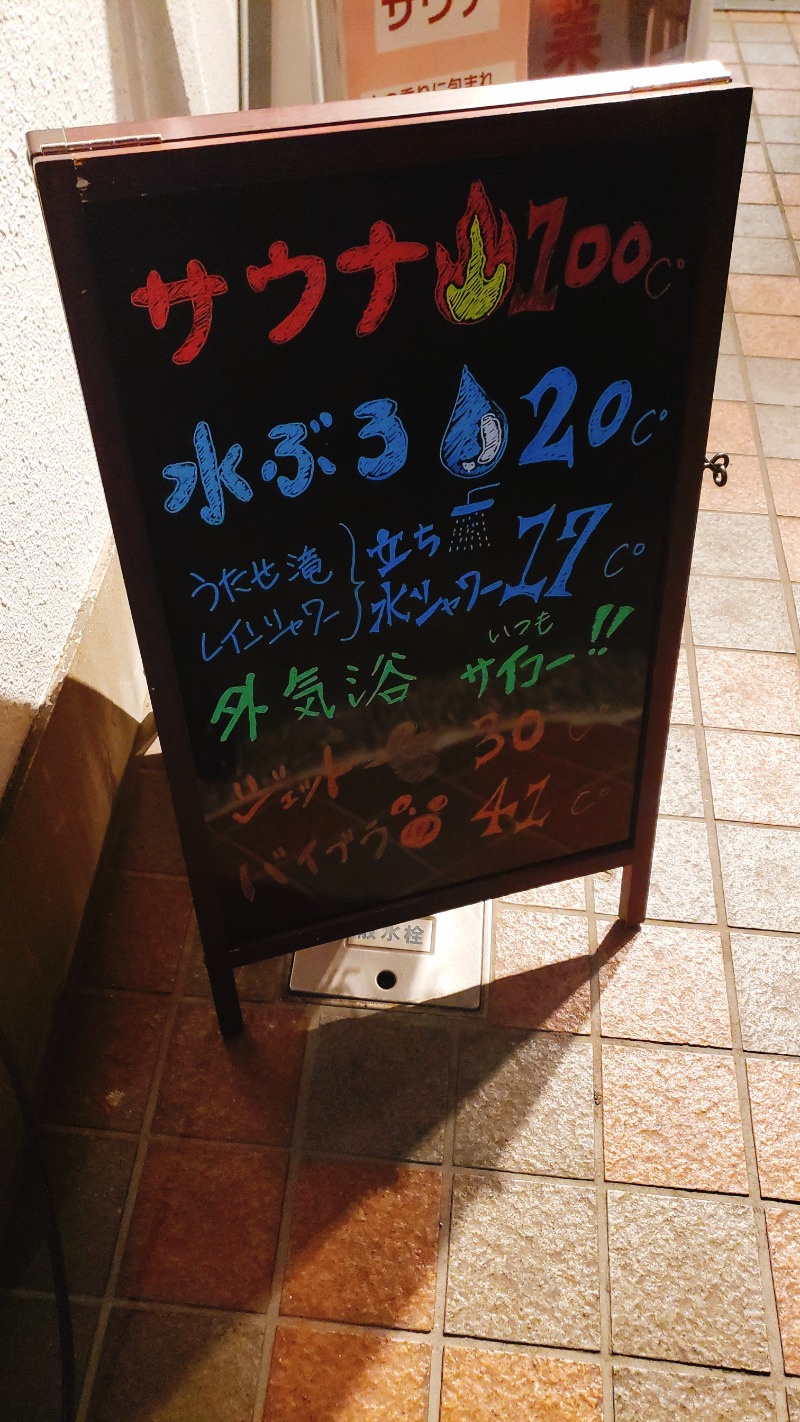 サウナ
業
の香りに包まれ
サウナ 100 C°
水ぶろ 20 C°
うたせ滝
レインシャワー
立ち
水シャワー 17 C°
外気浴 いつも サイコー!!
ジェット 30 C°
バイブラ 41 C°
散水栓